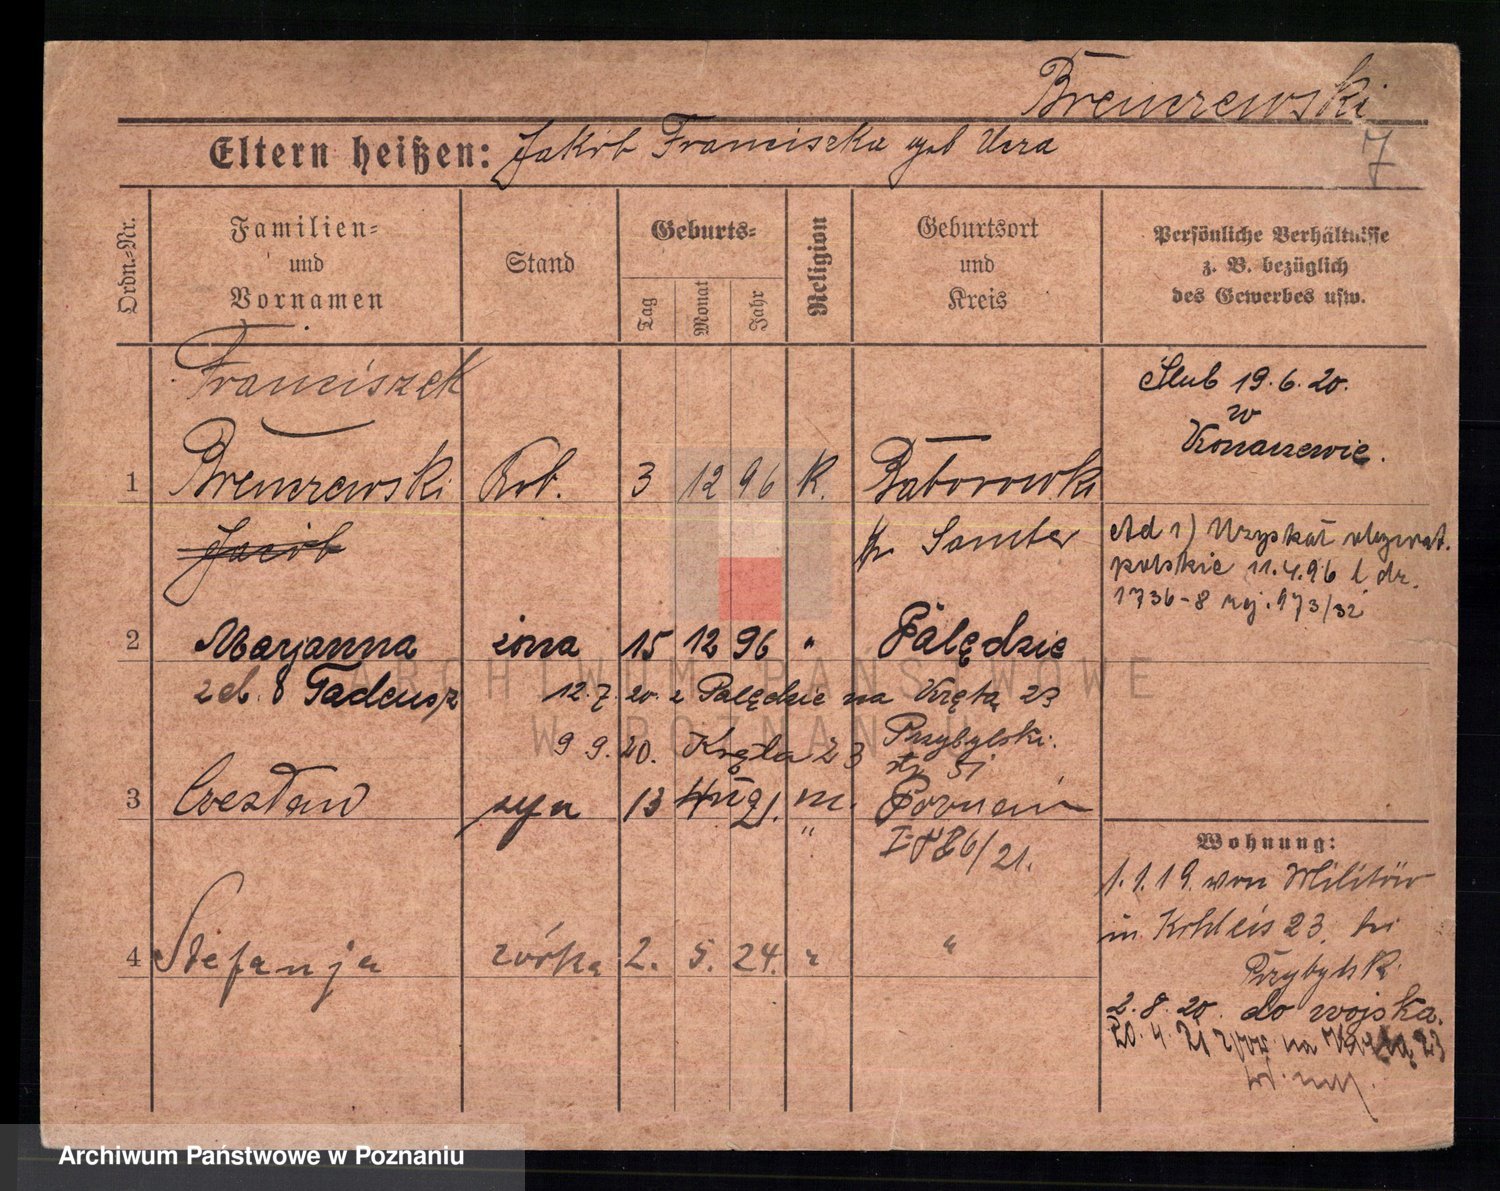 Brenczewski
Eltern heißen: Jakób Franciszka geb Ucza
7
Ordn.-Nr.
Familien-
und
Vornamen
Stand
Geburts-
Tag
Monat
Jahr
Religion
Geburtsort
und
Kreis
Persönliche Verhältnisse
z. B. bezüglich
des Gewerbes usw.
Franciszek
Ślub 19.6.20.
w
Konarzewie.
1 Brenczewski Rob. 3 12 96 K. Baborowko
Jacób
Kr Samter
Ad 1) Uzyskał obywat.
polskie 11.4.96 l dz.
1736-8 rej. 173/32
2 Maryanna żona 15 12 96 " Palędzie
zd. 8 Tadeusz 12.7.20. z Palędzie na Krętą 23
9 9. 20. Kręta 23 Przybylski.
3 Czesław syn 13 Aug 21. m. Poznań
"
86/21.
Wohnung:
1.1.19. von Militär
in Kohleis 23. bei
Przybylsk.
4 Stefanja córka 2. 5. 24. " "
2.8.20. do wojska.
20.4.21 na 23
ARCHIWUM PAŃSTWOWE
W POZNANIU
Archiwum Państwowe w Poznaniu